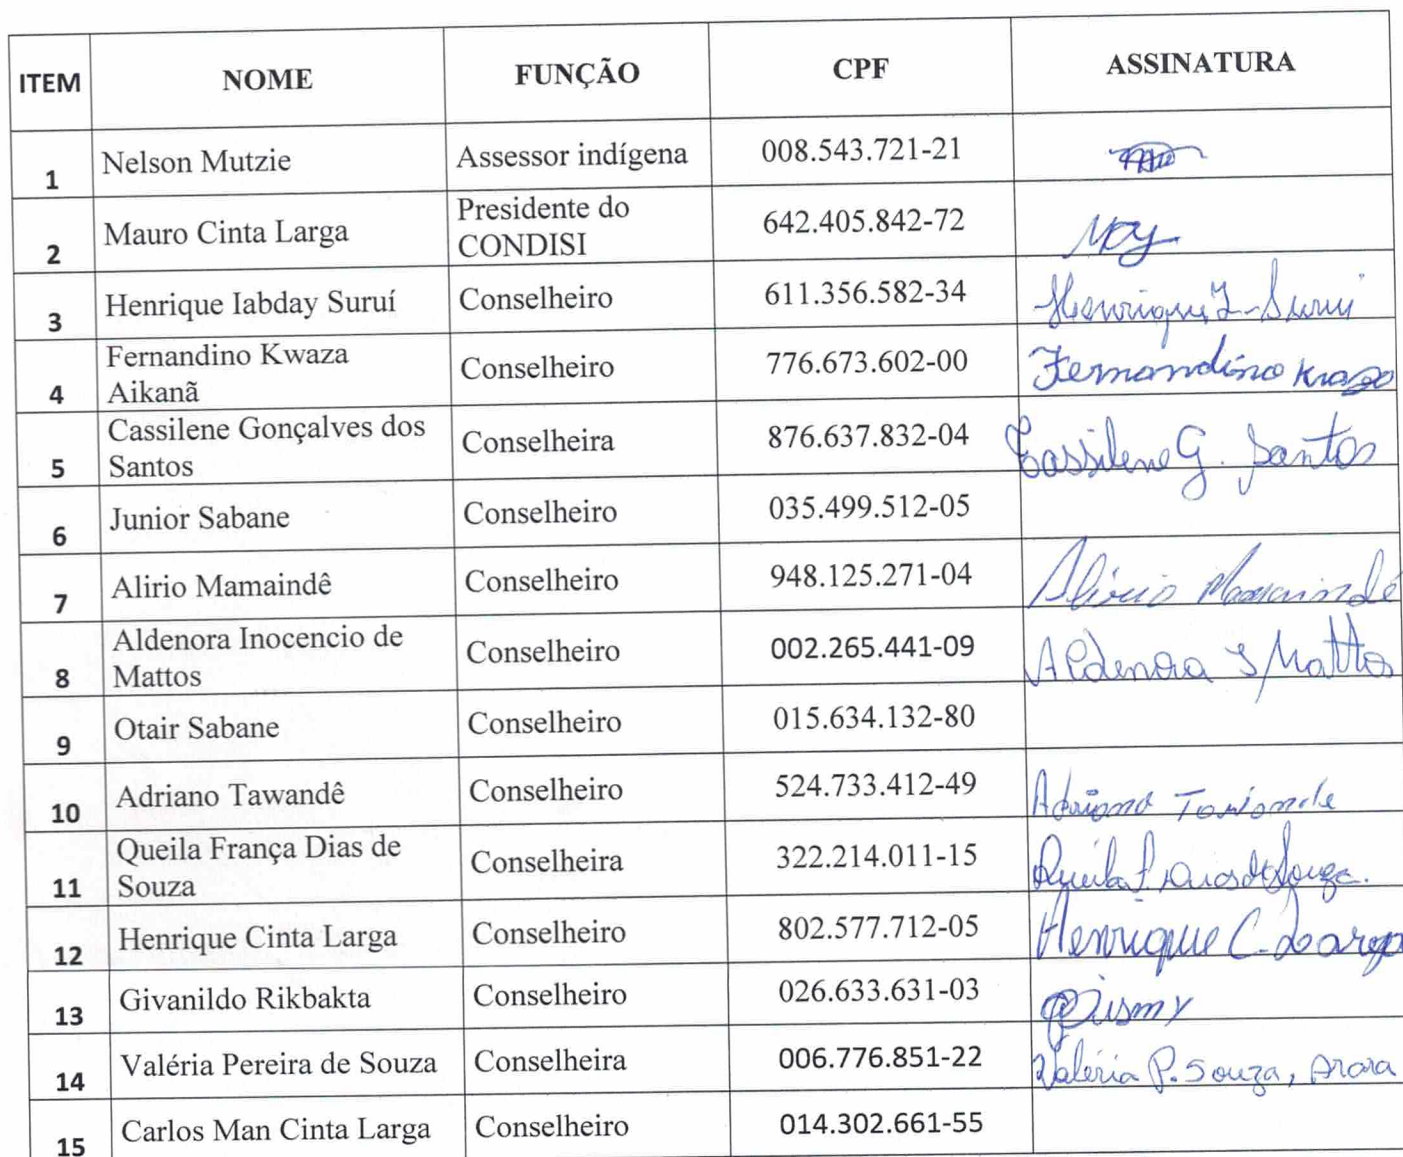 ITEM NOME FUNÇÃO CPF ASSINATURA
1 Nelson Mutzie Assessor indígena 008.543.721-21
2 Mauro Cinta Larga Presidente do CONDISI 642.405.842-72
3 Henrique Iabday Suruí Conselheiro 611.356.582-34 Henrique I-Surui
4 Fernandino Kwaza Aikanã Conselheiro 776.673.602-00 Fernandino
5 Cassilene Gonçalves dos Santos Conselheira 876.637.832-04 Cassilene G. Santos
6 Junior Sabane Conselheiro 035.499.512-05
7 Alirio Mamaindê Conselheiro 948.125.271-04 Alirio Mamaindê
8 Aldenora Inocencio de Mattos Conselheiro 002.265.441-09 Aldenora I Mattos
9 Otair Sabane Conselheiro 015.634.132-80
10 Adriano Tawandê Conselheiro 524.733.412-49 Adriano
11 Queila França Dias de Souza Conselheira 322.214.011-15 Queila F. Dias de Souza.
12 Henrique Cinta Larga Conselheiro 802.577.712-05 Henrique C. Larga
13 Givanildo Rikbakta Conselheiro 026.633.631-03
14 Valéria Pereira de Souza Conselheira 006.776.851-22 Valéria P. Souza, Arara
15 Carlos Man Cinta Larga Conselheiro 014.302.661-55